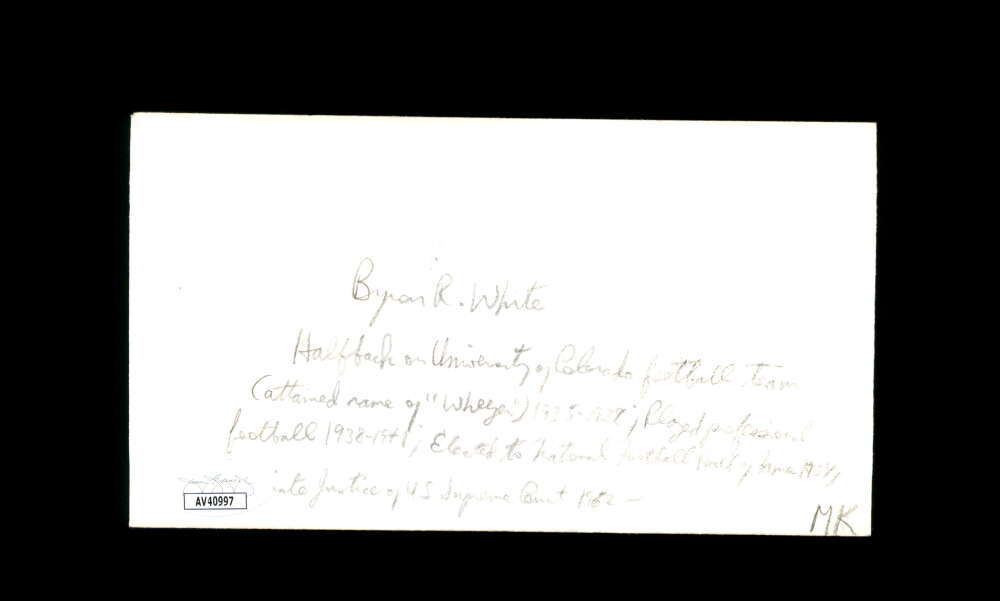 Byron R. White
Halfback on University of Colorado football team
(attained name of "Whizzer") 1935-1938; Played professional
football 1938-1941; Elected to National football Hall of fame
into Justice of US Supreme Court 1962 —
AV40997
MK